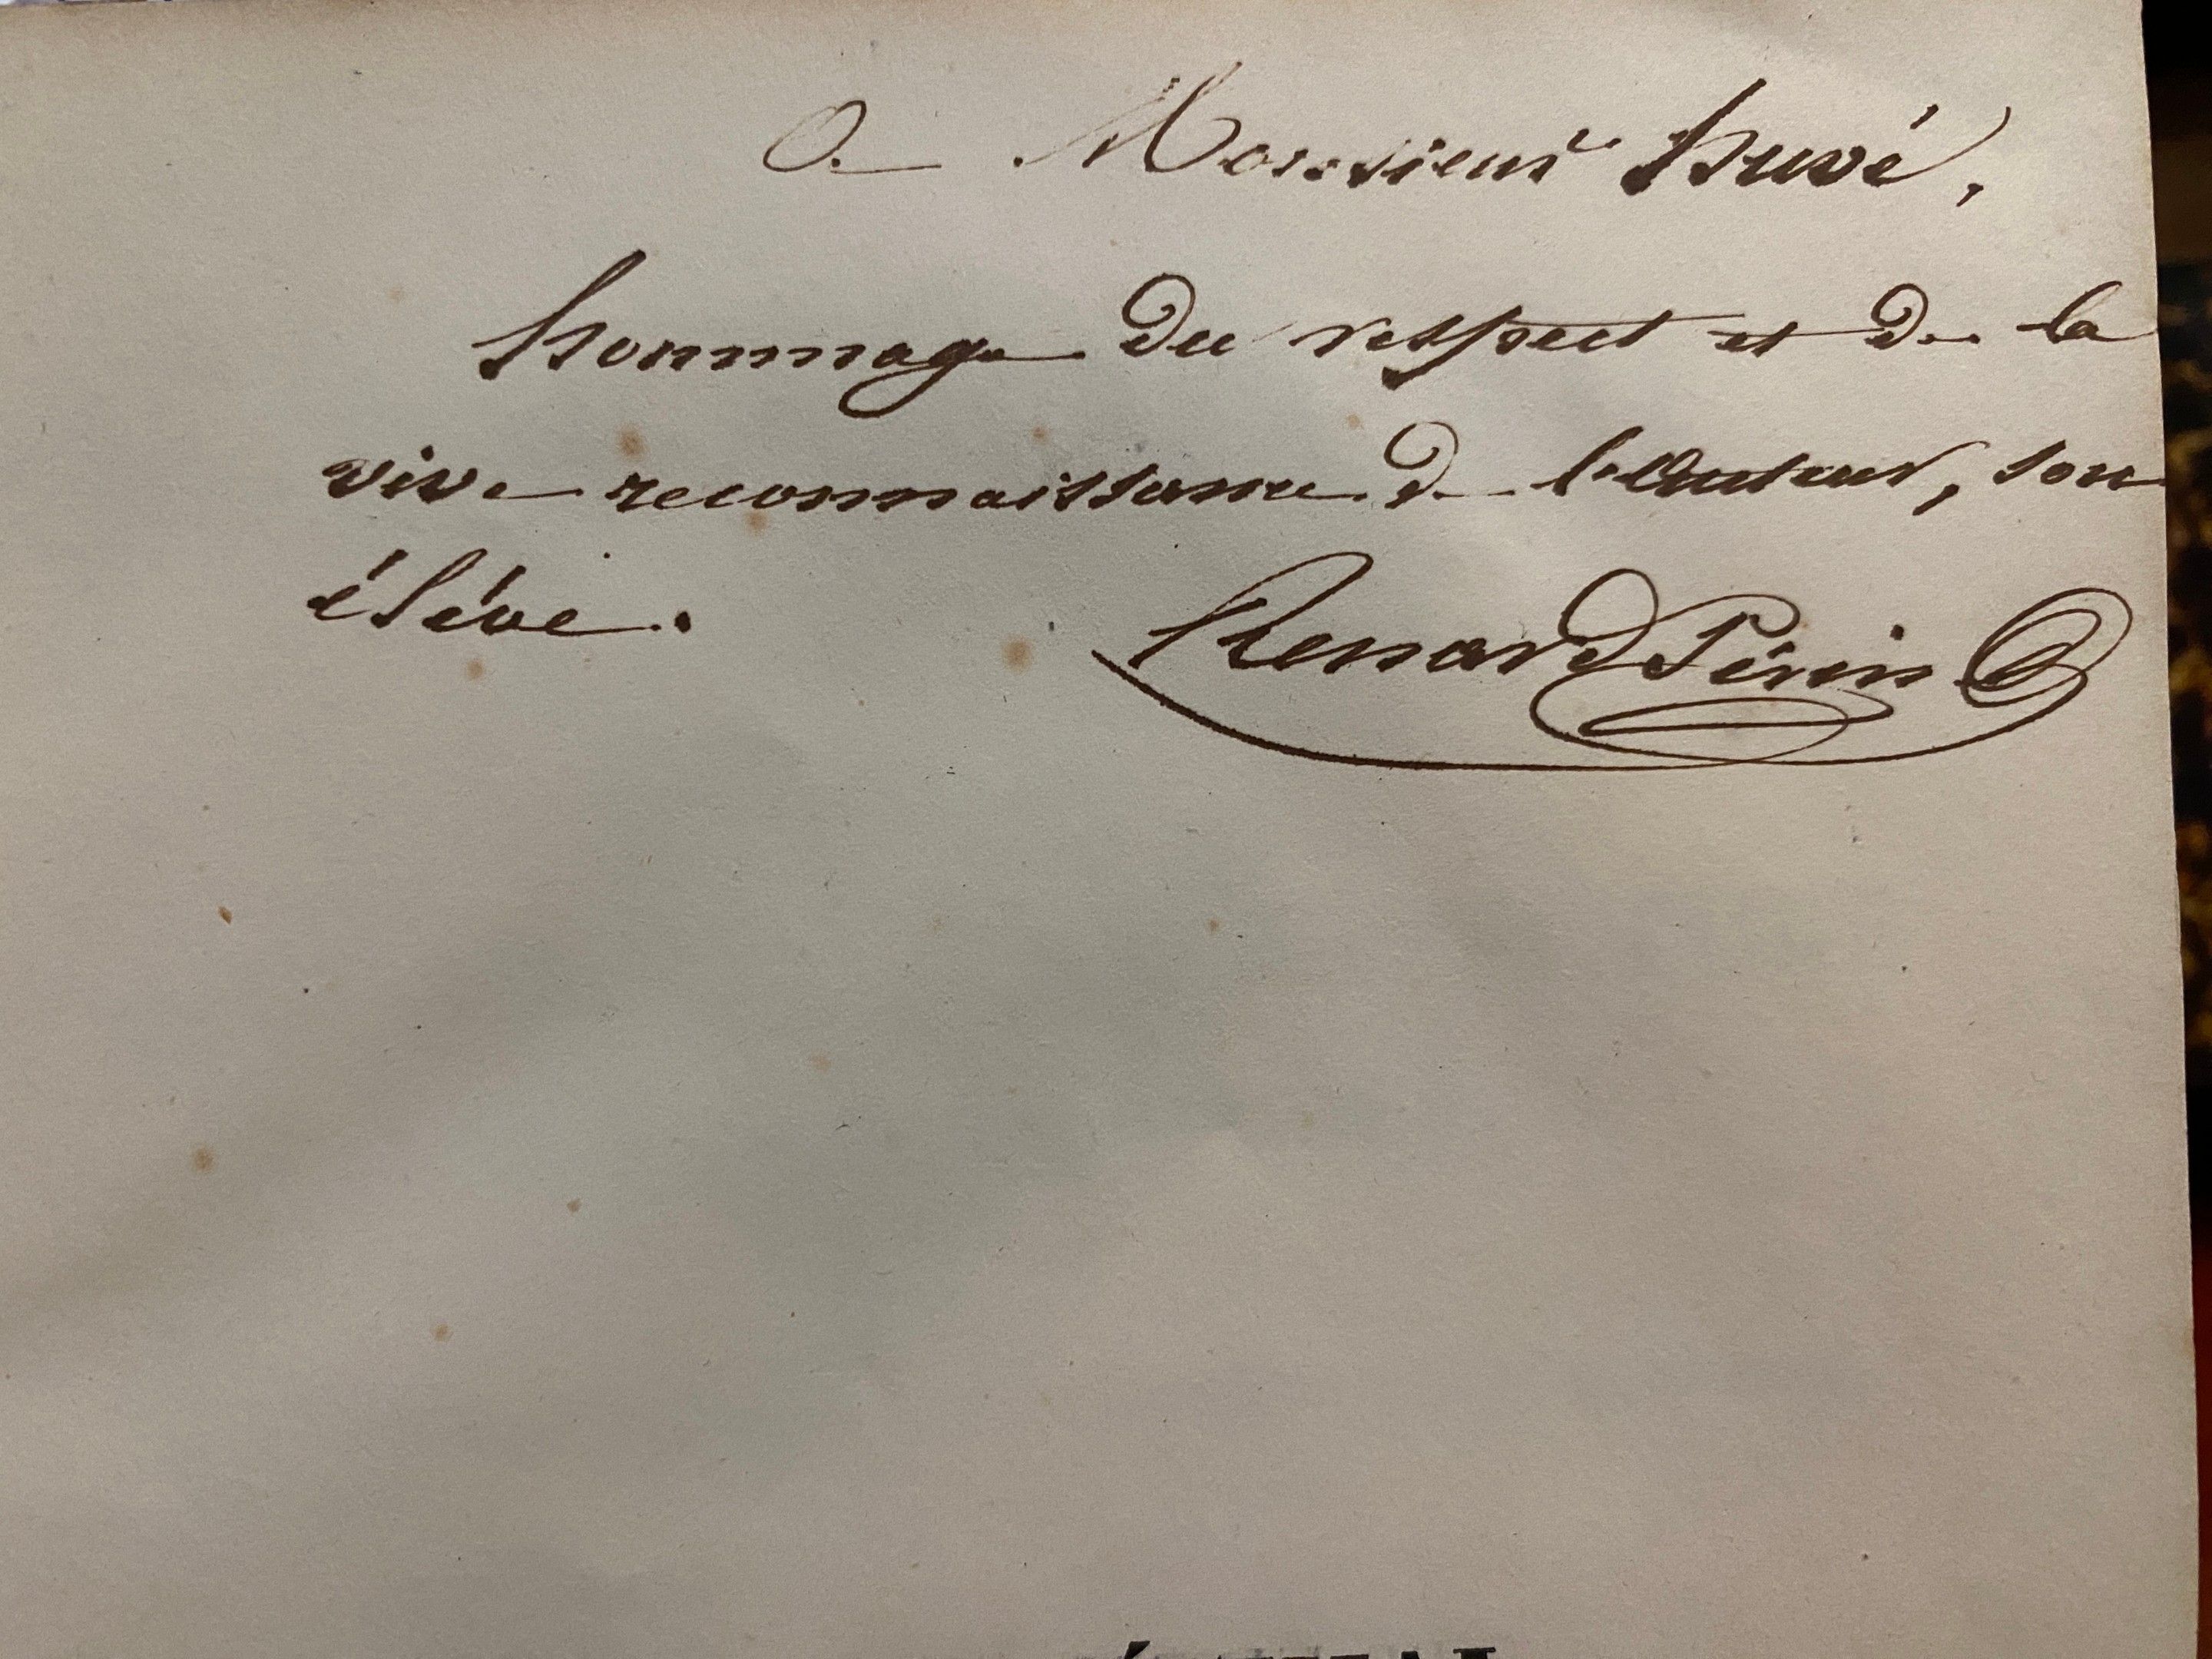 A Monsieur huvé,
hommage du respect et de la
vive reconnaissance de l'auteur, son
élève.
Renard Périn